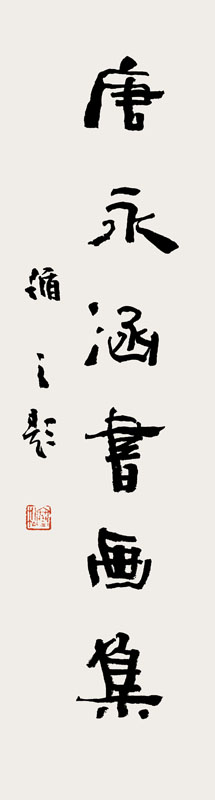 唐永涵書画集
循之題